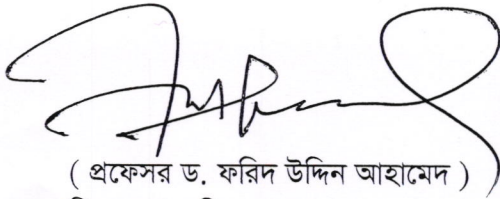 ( প্রফেসর ড. ফরিদ উদ্দিন আহামেদ )